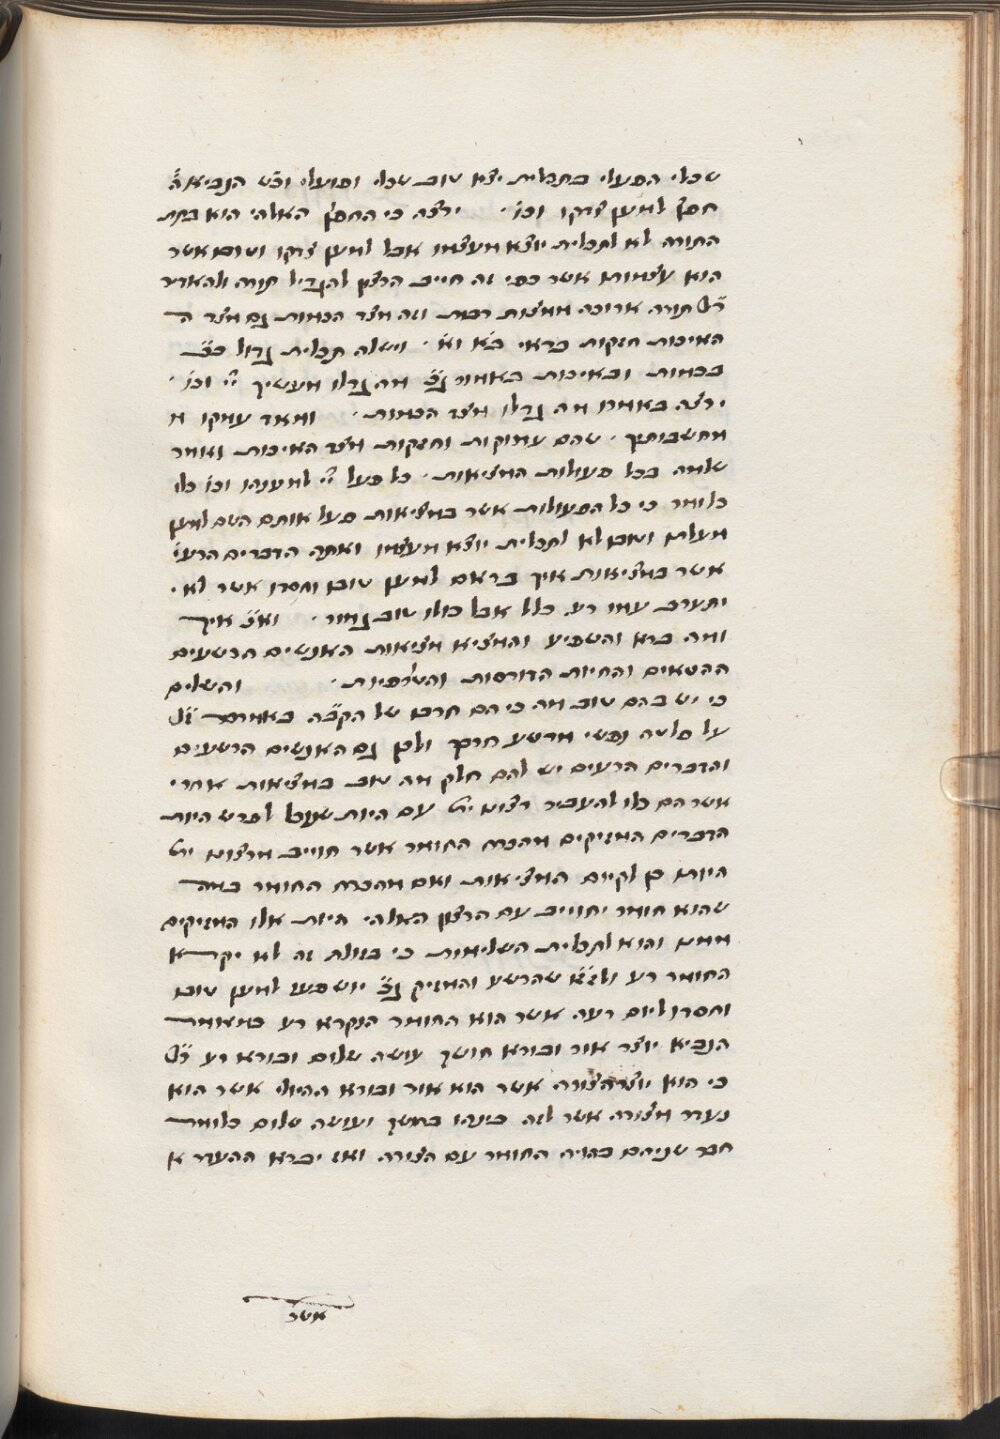 שכלי הפעלי בתכלית יצא טוב שכלי ופועלי וכ״ש הנביא ה׳
חפץ למען צדקו וכו׳ ירצה כי החפץ האלהי הוא בתת
התורה לא לתכלית יוצא מעצמו אבל למען צדקו וטובו אשר
הוא עצמותו אשר כפי זה חוייב הרצון להגדיל תורה ולהאדיר
ר״ל תורה ארוכה ממצות רבות וזה מצד הכמות גם מצד ה
האיכות חזקות כראוי בו׳ וא׳ וישלה תכלית גדול כ״כ
בכמות ובאיכות באמור ג״כ מה גדלו מעשיך יי׳ וכו׳
ירצה באמרו מה גדלו מצד הכמות ומאד עמקו מ
מחשבותיך שהם עמוקות וחזקות מצד האיכות ואמר
שלמה בכל פעולות המציאות כל פעל יי׳ למענהו וכו׳ כלו
כלומר כי כל הפעולות אשר במציאות פעל אותם השם למען
מעלתו וטובו לא לתכלית יוצא מעצמו ואתה הדברים הרעי׳
אשר במציאות איך בראם למען טובו וחסדו אשר לא
יתערב עמו רע כלל אבל כולו טוב גמור וא״כ איך
ומה ברא והשפיע והמציא מציאות האנשים הרשעים
החטאים והחיות הדורסות והטרפיות והשלים
כי יש בהם טוב מה כי הם חרבו של הקב״ה באמרם ז״ל
על פלטה נפשי מרשע חרבך ולכן גם האנשים הרשעים
והדברים הרעים יש להם חלק מה טוב במציאות אחרי
אשר הם כלו להעביר רצונו ית׳ עם היות שנוכל לפרש היות
הדברים המזיקים מהכרח החומר אשר חוייב מרצונו ית׳
היותו כן לקיום המציאות ואם מהכרח החומר במה
שהוא חומר יחוייב עם הרצון האלהי היות אלו המזיקים
ממנו והוא לתכלית השלימות כי בזולת זה לא יקרא
החומר רע ולז״א שהרשע והמזיק ג״כ יושפעו למען טובו
וחסדו ליום רעה אשר הוא החומר הנקרא רע כמאמר
הנביא יוצר אור ובורא חושך עושה שלום ובורא רע ר״ל
כי הוא יוצר הצורה אשר הוא אור ובורא ההיולי אשר הוא
נעדר מצורה אשר לזה כינהו בחשך ועושה שלום כלומר
חבר שניהם בהויה החומר עם הצורה ואז יברא ההעדר א
אשר